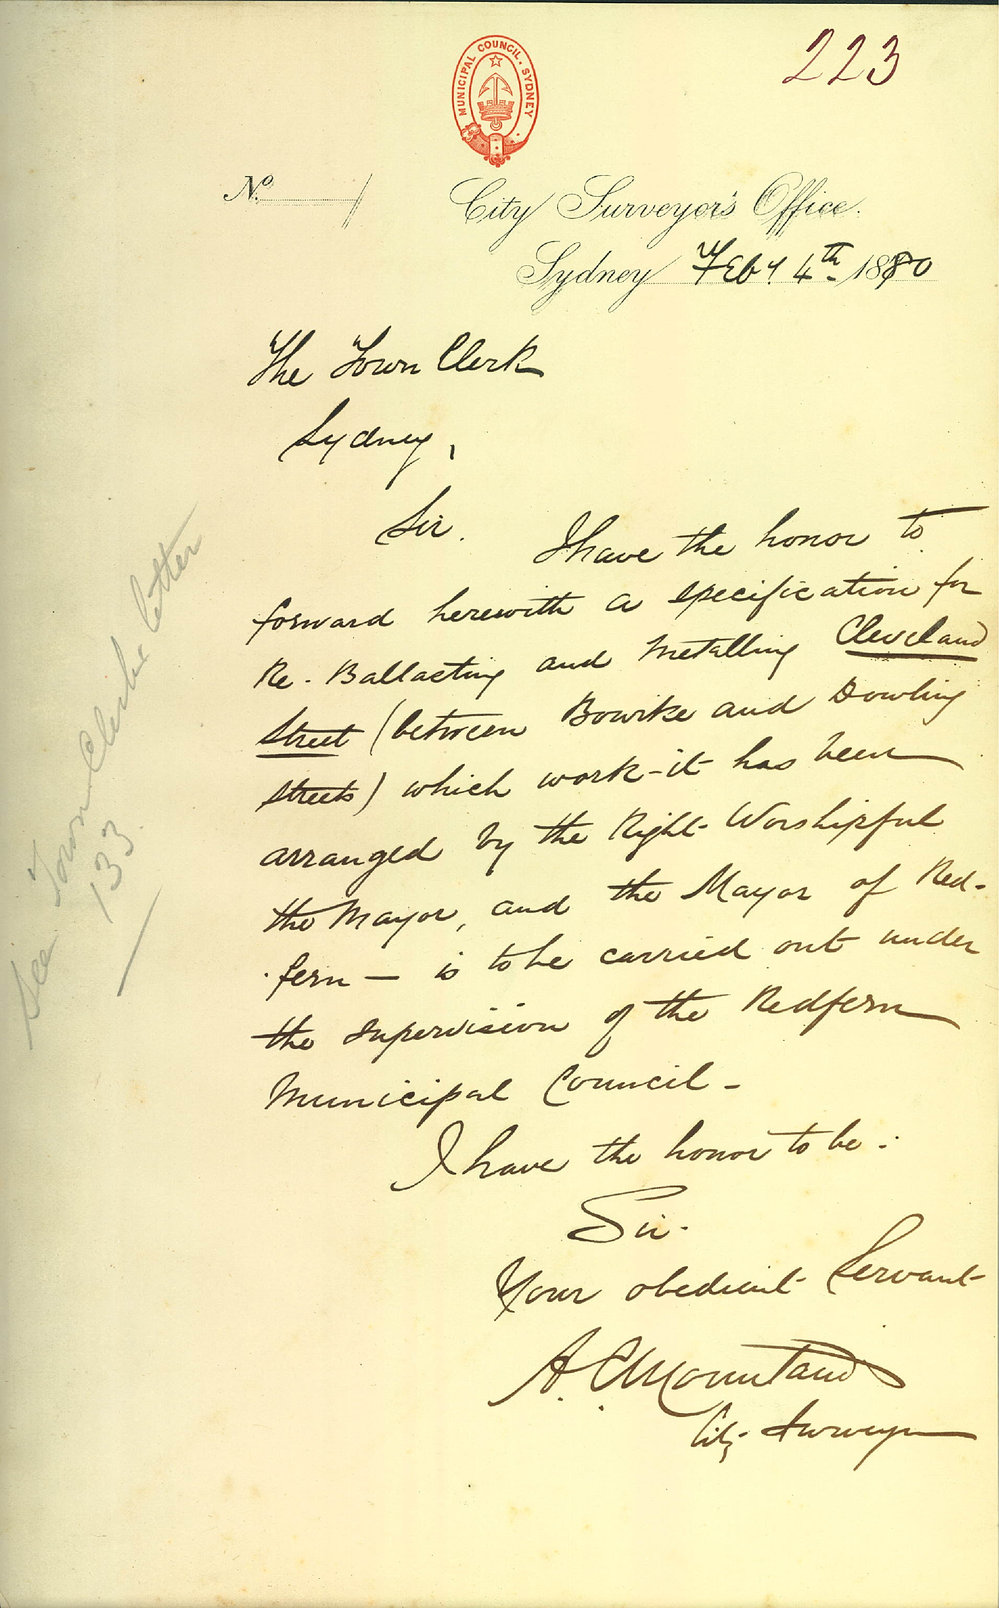 223
MUNICIPAL COUNCIL. SYDNEY
No. /
City Surveyor's Office.
Sydney Feby. 4th 1880
The Town Clerk
Sydney,
Sir. I have the honor to
forward herewith a specification for
Re-Ballasting and Metalling Cleveland
Street (between Bourke and Dowling
Streets) which work-it has been
arranged by the Right Worshipful
the Mayor, and the Mayor of Red-
-fern — is to be carried out under
the supervision of the Redfern
Municipal Council -
I have the honor to be.
Sir.
Your obedient Servant
A. C. Mountain
City Surveyor
See Town Clerks letter
133